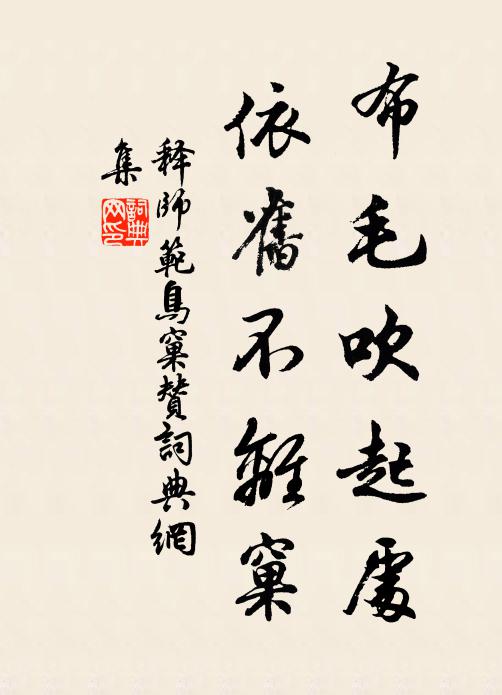 布毛吹起處
依舊不離窠
释師範鳥窠贊詞典網
集
詞典
网印